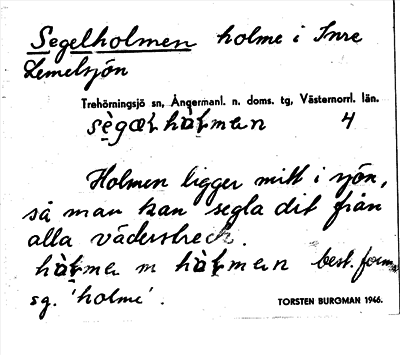 Segelholmen holme i Inre
Lemelsjön
Trehörningsjö sn, Ångermanl. n. doms. tg, Västernorrl. län.
4
Holmen ligger mitt i sjön,
så man kan segla dit från
alla väderstreck.
best. form
sg. 'holme'.
TORSTEN BURGMAN 1946.